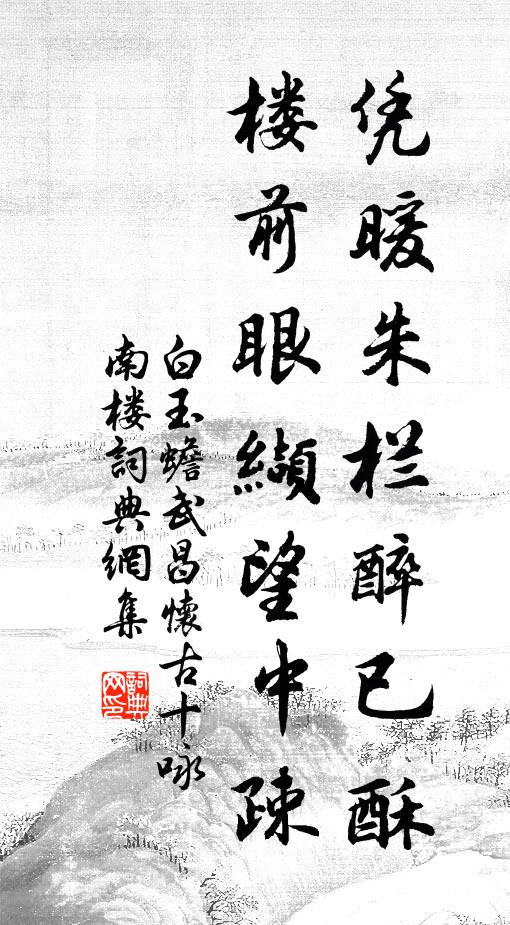 凭暖朱栏醉已酥
楼前眼缬望中疎
白玉蟾武昌懷古十咏
南楼詞典網集
詞典网印